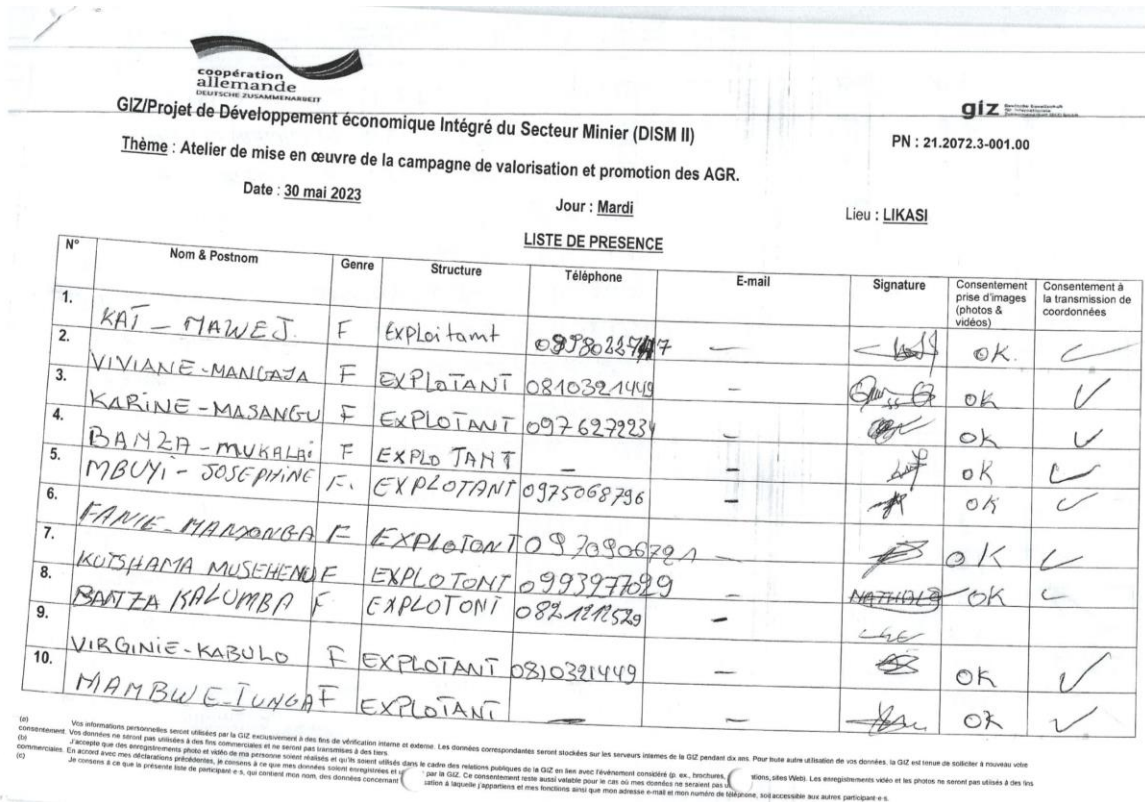 coopération
allemande
DEUTSCHE ZUSAMMENARBEIT
giz
GIZ/Projet de Développement économique Intégré du Secteur Minier (DISM II)
PN : 21.2072.3-001.00
Thème : Atelier de mise en œuvre de la campagne de valorisation et promotion des AGR.
Date : 30 mai 2023 Jour : Mardi Lieu : LIKASI
LISTE DE PRESENCE
N° Nom & Postnom Genre Structure Téléphone E-mail Signature Consentement prise d'images (photos & vidéos) Consentement à la transmission de coordonnées
1. KAT - MAWEJ. F Exploitamt - OK.
2. VIVIANE-MANGAJA F EXPLOTANT 08103921449 - OK
3. KARINE-MASANGU F EXPLOTANT 0976272234 - OK
4. BANZA-MUKALAi F EXPLOTANT - - OK
5. MBUYi-JOSEPHINE F. EXPLOTANT 0975068796 - OK
6. FANIE-MANXONGA F EXPLOTONT 0970906721 - OK
7. KUTSHAMA MUSEHENU F EXPLOTONT 0993977029 NATHALIE OK
8. BANZA KALUMBA F EXPLOTONT -
9. VIRGINIE-KABULO F EXPLOTANT 0810321449 - OK
10. MAMBWE-TUNGA F EXPLOTANT - - OK
(a) Vos informations personnelles seront utilisées par la GIZ exclusivement à des fins de vérification interne et externe. Les données correspondantes seront stockées sur les serveurs internes de la GIZ pendant dix ans. Pour toute autre utilisation de vos données, la GIZ est tenue de solliciter à nouveau votre
consentement. Vos données ne seront pas utilisées à des fins commerciales et ne seront pas transmises à des tiers.
(b) J'accepte que des enregistrements photo et vidéo de ma personne soient réalisés et qu'ils soient utilisés dans le cadre des relations publiques de la GIZ en lien avec l'événement considéré (p. ex., brochures, ations, sites Web). Les enregistrements vidéo et les photos ne seront pas utilisés à des fins
commerciales. En accord avec mes déclarations précédentes, je consens à ce que mes données soient enregistrées et par la GIZ. Ce consentement reste aussi valable pour le cas où mes données ne seraient pas
(c) Je consens à ce que la présente liste de participant·e·s, qui contient mon nom, des données concernant sation à laquelle j'appartiens et mes fonctions ainsi que mon adresse e-mail et mon numéro de téléphone, soit accessible aux autres participant·e·s.